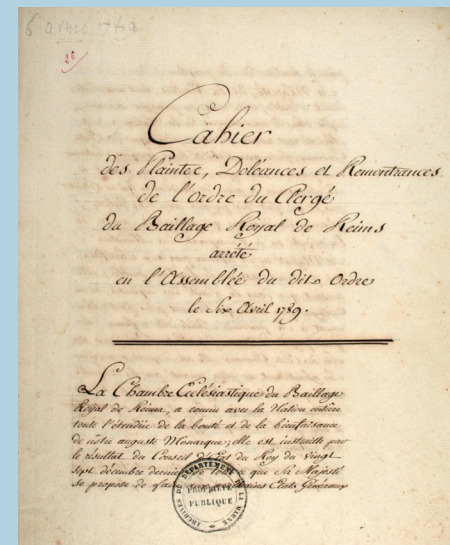 6 avril 1789
26
Cahier
des Plaintes, Doléances et Remontrances
de l'ordre du Clergé
du Baillage Royal de Reims
arrété
en l'Assemblée du dit Ordre
le Six Avril 1789.
La Chambre Ecclésiastique du Baillage
Royal de Reims, a connu avec la Nation entière
toute l'étendue de la bonté et de la bienfaisance
de nôtre auguste Monarque; elle est instruite par
le résultat du Conseil d'Etat du Roy du Vingt
Sept décembre dernier de que Sa Majesté
se propose de faire aux prochains Etats Généraux
ARCHIVES DU DÉPARTEMENT DE LA MARNE
PROPRIÉTÉ
PUBLIQUE